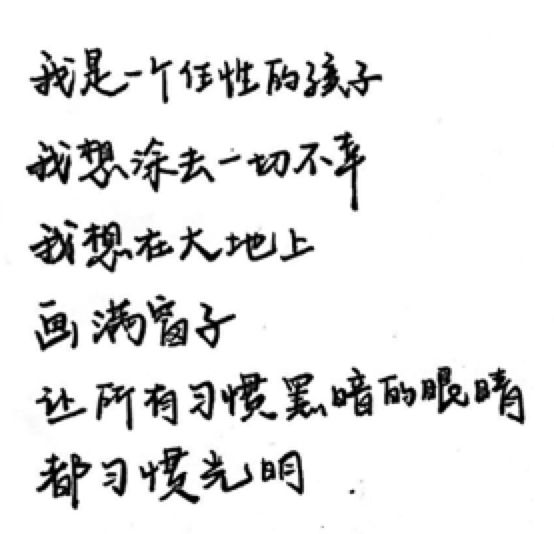 我是一个任性的孩子
我想涂去一切不幸
我想在大地上
画满窗子
让所有习惯黑暗的眼睛
都习惯光明.